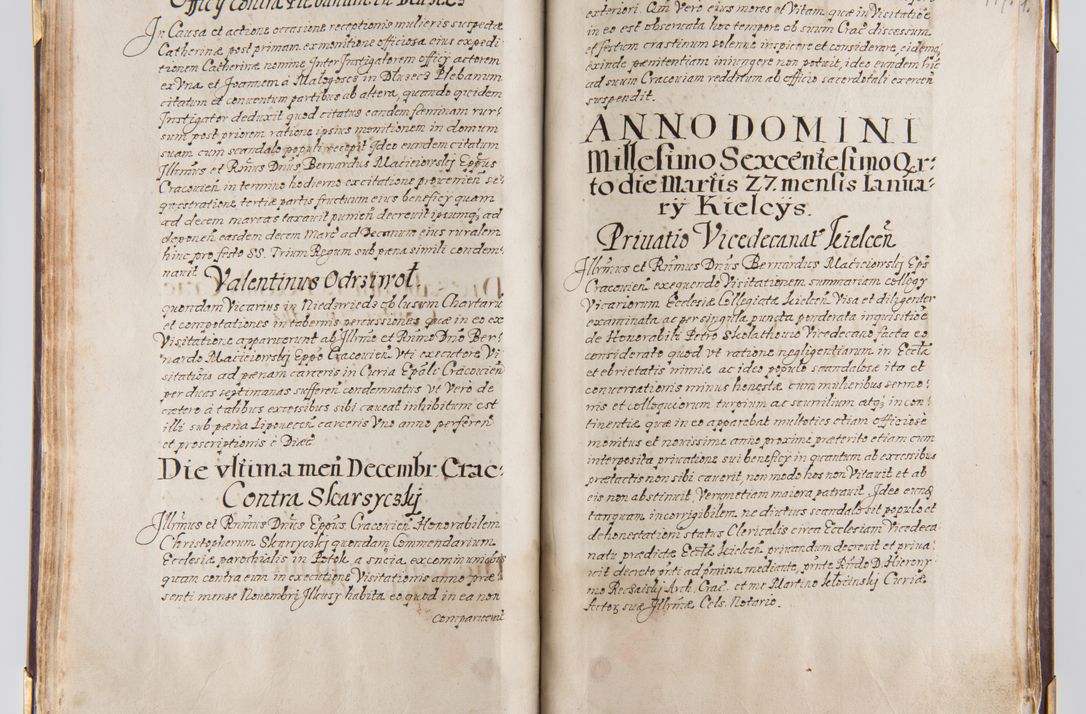 Officÿ Contra Plebanum in Dlusecz
In Causa et actione occasione receptionis mulieris suspectæ
Catherinæ post primam ex monitione officiosa eius expedi
tionem Catherinæ nomine, Inter Instigatorem officÿ actorem
ex Vna et Joannem à Malogoscz in Dlusecz Plebanum
citatum et conuentum partibus ab altera, quando quidem
Instigator deduxit quod citatus eandem fœminam rur
sum post priorem ratione ipsius monitionem in domum
suam cum scandalo populi recepit Ideo eundem citatum
Illrmus et Rmus Dnus Bernardus Macieiorskÿ Eppus
Cracouien in termino hodierno ex citatione
questratione tertiæ partis fructuum eius beneficÿ quam
ad decem marcas taxauit punien decreuit ipsumq ad
deponen easdem decem Marc ad Decanum eius ruralem
hinc pro festo SS. Trium Regum sub pæna simili condem
nauit
Valentinus Odrziwoł
quondam Vicarius in ob lusum Chartarū
et compotationes in tabernis percussiones quæ in eo ex
Visitatione apparuerunt ab Illrmo et Rmo Dno Ber
nardo Macieiorskÿ Eppo Cracouien Vti executore Vi
sitatiōis ad pænam carceris in Curia Epāli Cracouien
per duas septimanas sufferen condemnatus vt Vero de
cætero à talibus excessibus sibi caueat inhibitum est
illi sub pæna Lipouecen carceris Vno anno perferen
et proscriptionis è Diæc
Die vltima men Decembr Crac:
Contra Skarsyczkÿ
Illrmus et Rmus Dnus Eppus Cracouien Honorabilem
Christopherum Skarsyczkÿ quondam Commendarium
Ecclesiæ parochialis in Potok à sncia excommunicatiōis
quam contra eum in executione Visitationis anno præ
senti mense Nouembri Ilkusÿ habita eo quod in ea non
comparuerit
exteriori. Cum Vero eius mores et Vitam, quæ in Visitatiōe
in eo est obseruata hoc tempore ob suum Crac discessum
et festum crastinum solenne inspicere et considerare, eidemq
exinde pænitentiam iniungere non potuit, ideo eundem huc
ad suum Cracouiam redditum ab officio sacerdotali exercen
suspendit.
ANNO DOMINI
Millesimo Sexcentesimo Qr:
to die Martis 27 mensis Ianua:
rÿ Kielcÿs.
Priuatio Vicedecanat Kielcen
Illrmus et Rmus Dnus Bernardus Macieiorskÿ Epus
Cracouien exequendo Visitationem summariam collegÿ
Vicariorum Ecclesiæ Collegiatæ Kielcen Visa et diligenter
examinata ac per singula puncta ponderata inquisitiōe
de Honorabili Petro Vicedecano facta eo
considerato quod vt ratione negligentiarum in Ecclã
et ebrietatis nimiæ ac ideo populo scandalosæ ita et
conuersationis minus honestæ cum mulieribus sermo:
nis et colloquiorum turpium ac scurilium atq incon:
tinentiæ quæ in eo apparebat multoties etiam officiose
monitus et nouissime anno proxime præterito etiam cum
interposita priuatione sui beneficÿ in quantum ab excessibus
prætactis non sibi cauerit, non modo hos non Vitauit et ab
eis non abstinuit, Verumetiam maiora patrauit, Ideo eundē
tanquam incorrigibilem ne diutius scandalo sit populo et
dehonestationi status Clericalis circa Ecclesiam Vicedeca
natu prædictæ Ecclæ Kielcen priuandum decreuit et priua
uit decreto pnti ad præmissa mediante, pnte Rndo D. Hierony
mo Arch. Crac. et me Martino Curiæ
Actor suæ Illrmæ Cels. Notario.